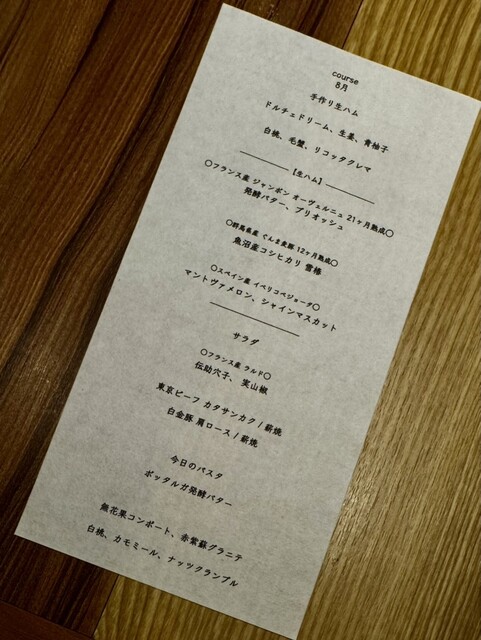 course
8月
手作り生ハム
ドルチェドリーム、生姜、青柚子
白桃、毛蟹、リコッタクレマ
【生ハム】
○フランス産 ジャンボン オーヴェルニュ 21ヶ月熟成○
発酵バター、ブリオッシュ
○群馬県産 ぐんま麦豚 12ヶ月熟成○
魚沼産コシヒカリ 雪椿
○スペイン産 イベリコベジョータ○
マントヴァメロン、シャインマスカット
サラダ
○フランス産 ラルド○
伝助穴子、実山椒
東京ビーフ カタサンカク / 薪焼
白金豚 肩ロース / 薪焼
今日のパスタ
ボッタルガ発酵バター
無花果コンポート、赤紫蘇グラニテ
白桃、カモミール、ナッツクランブル